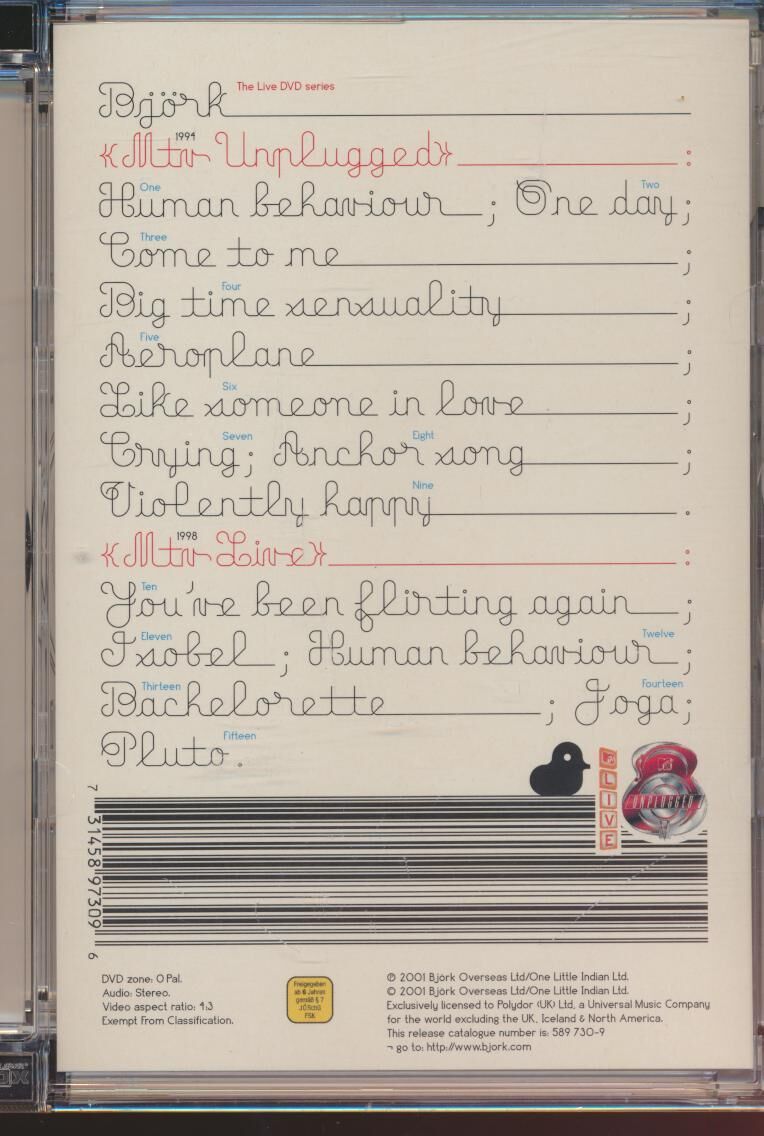 The Live DVD series
Björk
1994
«Mtv Unplugged» :
One Two
Human behaviour ; One day;
Three
Come to me ;
Four
Big time sensuality ;
Five
Aeroplane ;
Six
Like someone in love ;
Seven Eight
Crying; Anchor song ;
Nine
Violently happy .
1998
«Mtv Live» :
Ten
You've been flirting again ;
Eleven Twelve
Isobel ; Human behaviour ;
Thirteen Fourteen
Bachelorette ; Joga;
Fifteen
Pluto.
LIVE
UNPLUGGED
7 31458 97309 6
DVD zone: 0 Pal.
Audio: Stereo.
Video aspect ratio: 4:3
Exempt From Classification.
Freigegeben
ab 6 Jahren
gemäß § 7
JÖSchG
FSK
℗ 2001 Björk Overseas Ltd/One Little Indian Ltd.
© 2001 Björk Overseas Ltd/One Little Indian Ltd.
Exclusively licensed to Polydor (UK) Ltd, a Universal Music Company
for the world excluding the UK, Iceland & North America.
This release catalogue number is: 589 730-9
¬ go to: http://www.bjork.com